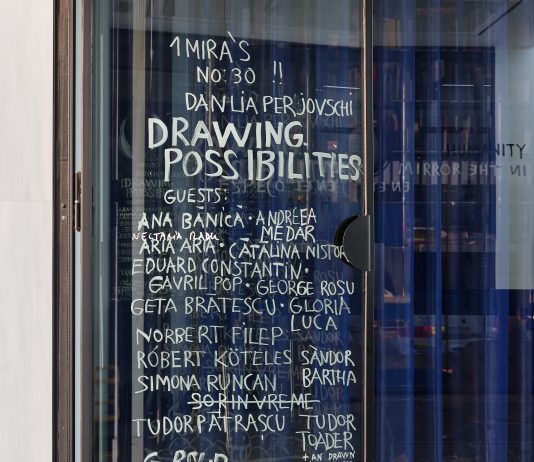 1 MIRA'S
NO: 30 !!
DAN LIA PERJOVSCHI
DRAWING
POSSIBILITIES
GUESTS:
ANA BĂNICĂ • ANDREEA
MEDAR
ARIA ARIA • CĂTĂLINA NISTOR
EDUARD CONSTANTIN •
GAVRIL POP • GEORGE ROSU
GETA BRĂTESCU • GLORIA
LUCA
NORBERT FILEP
RÓBERT KÖTELES SÀNDOR
SIMONA RUNCAN BARTHA
SORIN VREME
TUDOR PĂTRAȘCU TUDOR
TOADER
+ AN DRAWN
IN THE MIRROR